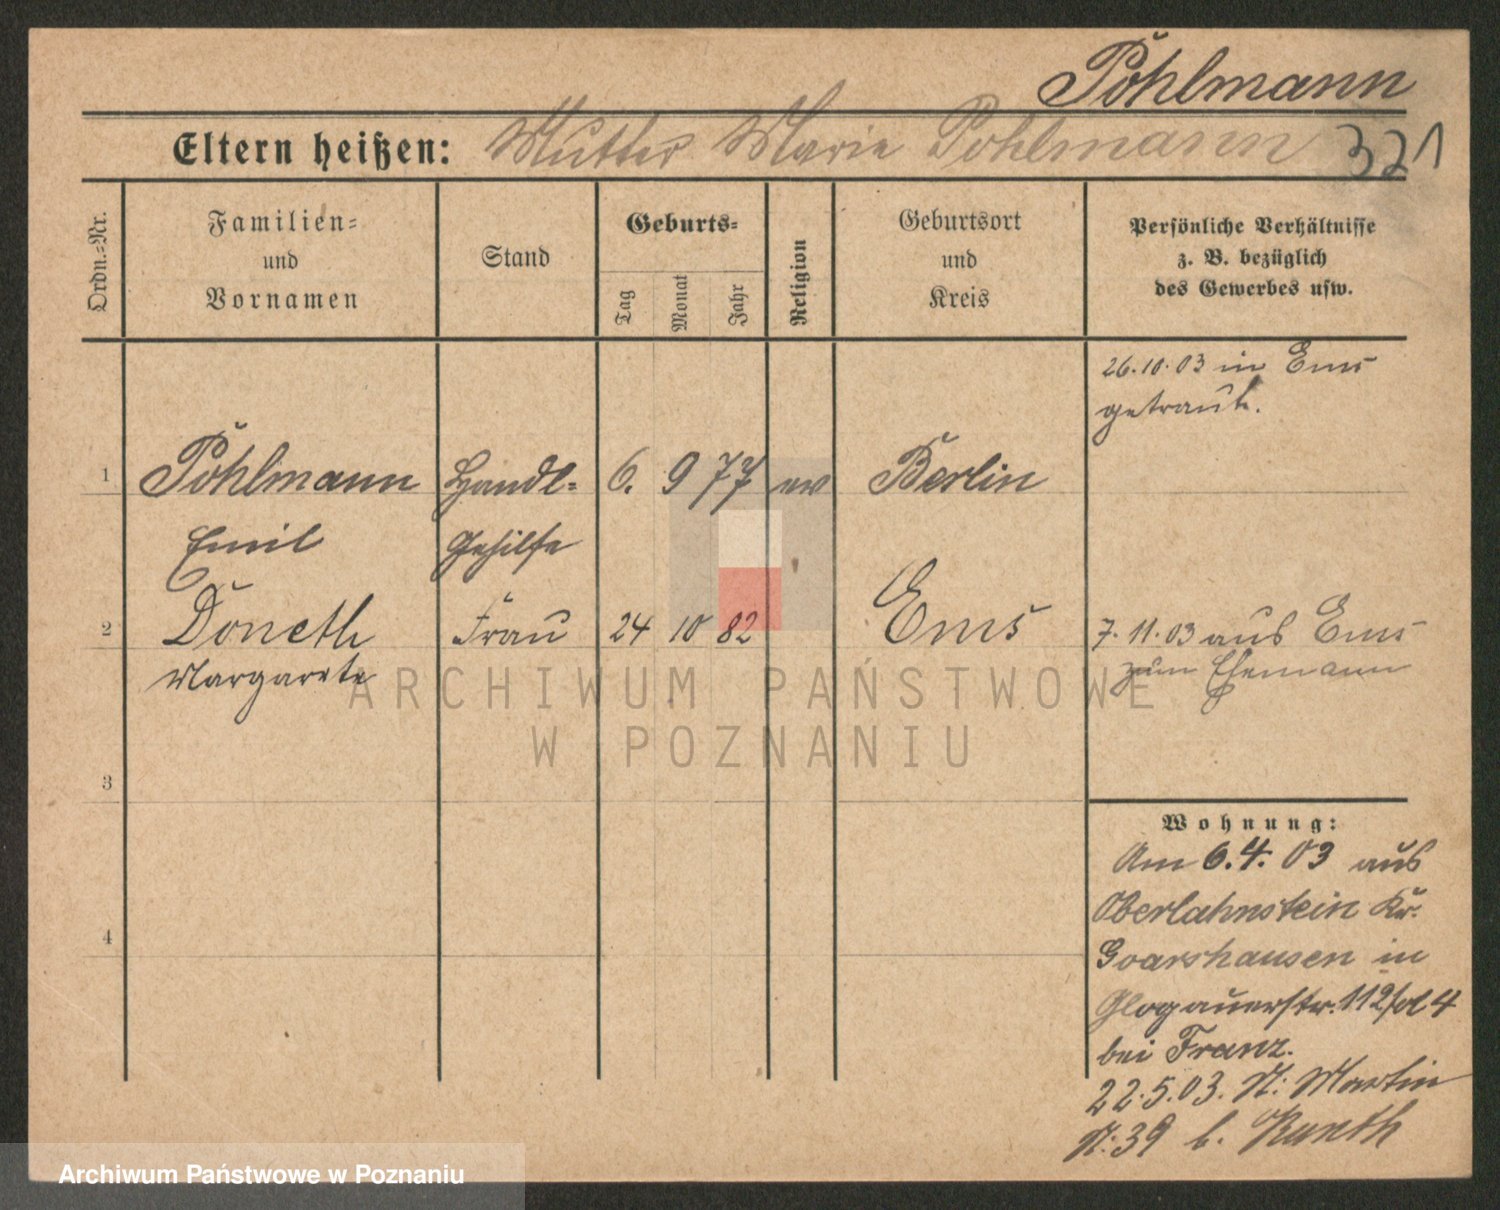 Pöhlmann
Eltern heißen: Mutter Marie Pohlmann 321
Ordn.-Nr.
Familien- und Vornamen
Stand
Geburts-
Tag
Monat
Jahr
Religion
Geburtsort und Kreis
Persönliche Verhältnisse
z. B. bezüglich
des Gewerbes usw.
26.10.03 in Ems
getraut.
1 Pöhlmann Handl- 6. 9 77 ev Berlin
Emil Gehilfe
2 Döneth Frau 24 10 82 Ems 7.11.03 aus Ems
Margarete zum Ehemann
3
4
Wohnung:
Am 6.4.03 aus
Oberlahnstein Kr.
Goarshausen in
Glogauerstr. 112
bei Franz.
22.5.03. St: Martin
39 b. Kunth
ARCHIWUM PAŃSTWOWE
W POZNANIU
Archiwum Państwowe w Poznaniu